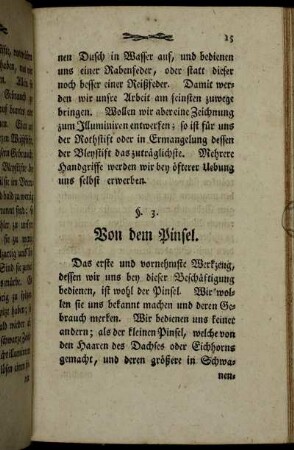 25
nen Dusch in Wasser auf, und bedienen
uns einer Rabenfeder, oder statt dieser
noch besser einer Reißfeder. Damit wer-
den wir unsre Arbeit am feinsten zuwege
bringen. Wollen wir aber eine Zeichnung
zum Illuminiren entwerfen; so ist für uns
der Rothstift oder in Ermangelung dessen
der Bleystift das zuträglichste. Mehrere
Handgriffe werden wir bey öfterer Uebung
uns selbst erwerben.
§. 3.
Von dem Pinsel.
Das erste und vornehmste Werkzeug,
dessen wir uns bey dieser Beschäftigung
bedienen, ist wohl der Pinsel. Wir wol-
len sie uns bekannt machen und deren Ge-
brauch merken. Wir bedienen uns keiner
andern; als der kleinen Pinsel, welche von
den Haaren des Dachses oder Eichhorns
gemacht, und deren größere in Schwa-
nen-